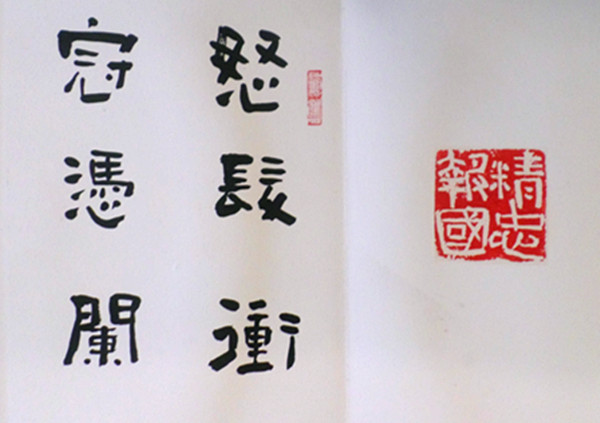 精忠
報國
怒髮衝
冠憑闌